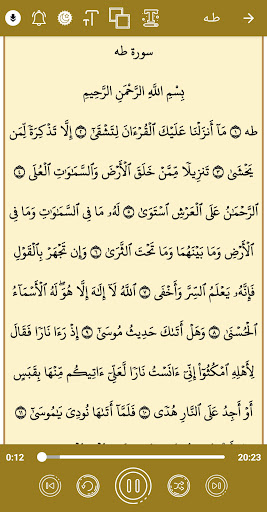 طه
سورة طه
بِسْمِ اللَّهِ الرَّحْمَٰنِ الرَّحِيمِ
طه ۝١ مَآ أَنزَلْنَا عَلَيْكَ ٱلْقُرْءَانَ لِتَشْقَىٰٓ ۝٢ إِلَّا تَذْكِرَةً لِّمَن
يَخْشَىٰ ۝٣ تَنزِيلًا مِّمَّنْ خَلَقَ ٱلْأَرْضَ وَٱلسَّمَٰوَٰتِ ٱلْعُلَى ۝٤
ٱلرَّحْمَٰنُ عَلَى ٱلْعَرْشِ ٱسْتَوَىٰ ۝٥ لَهُۥ مَا فِى ٱلسَّمَٰوَٰتِ وَمَا فِى
ٱلْأَرْضِ وَمَا بَيْنَهُمَا وَمَا تَحْتَ ٱلثَّرَىٰ ۝٦ وَإِن تَجْهَرْ بِٱلْقَوْلِ
فَإِنَّهُۥ يَعْلَمُ ٱلسِّرَّ وَأَخْفَى ۝٧ ٱللَّهُ لَآ إِلَٰهَ إِلَّا هُوَ ۖ لَهُ ٱلْأَسْمَآءُ
ٱلْحُسْنَىٰ ۝٨ وَهَلْ أَتَىٰكَ حَدِيثُ مُوسَىٰٓ ۝٩ إِذْ رَءَا نَارًا فَقَالَ
لِأَهْلِهِ ٱمْكُثُوٓا۟ إِنِّىٓ ءَانَسْتُ نَارًا لَّعَلِّىٓ ءَاتِيكُم مِّنْهَا بِقَبَسٍ
أَوْ أَجِدُ عَلَى ٱلنَّارِ هُدًى ۝١٠ فَلَمَّآ أَتَىٰهَا نُودِىَ يَٰمُوسَىٰٓ ۝١١
0:12 20:23